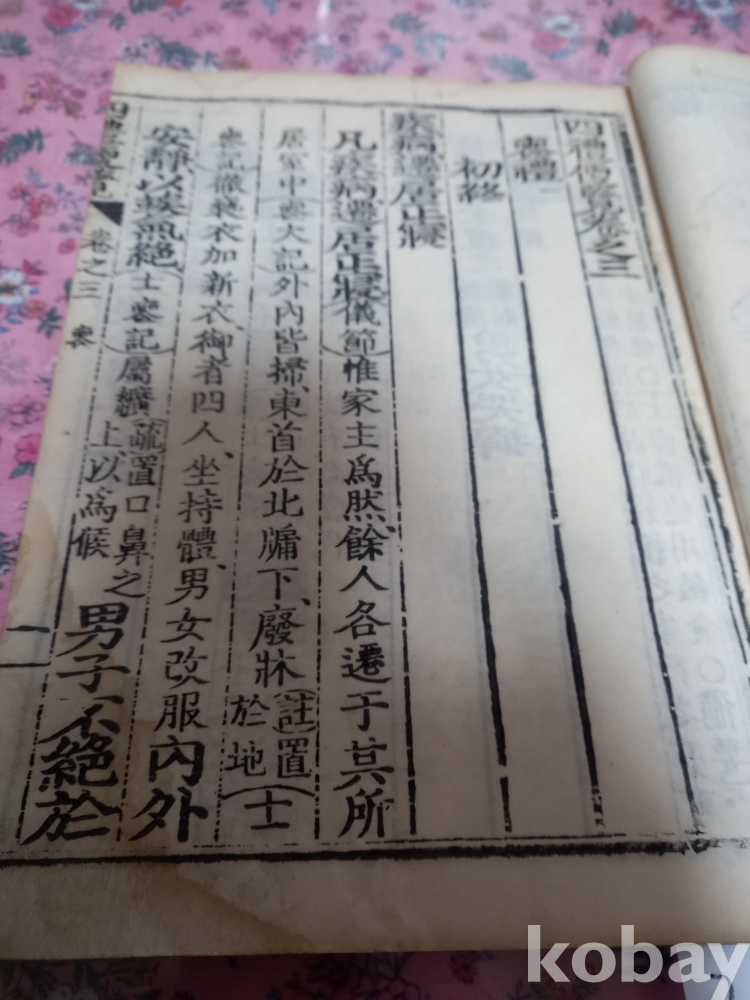 四禮備要卷之三
喪禮二
初終
疾病遷居正寢
凡疾病遷居正寢(儀節)惟家主爲然、餘人各遷于其所
居室中(喪大記)外內皆掃、東首於北牖下、廢牀(註)置於地(士
喪記)徹褻衣加新衣、御者四人、坐持體、男女改服內外
安靜以俟氣絶(士喪記)屬纊(疏)置口鼻之上、以爲候男子不絶於
卷之三 喪 一
kobay